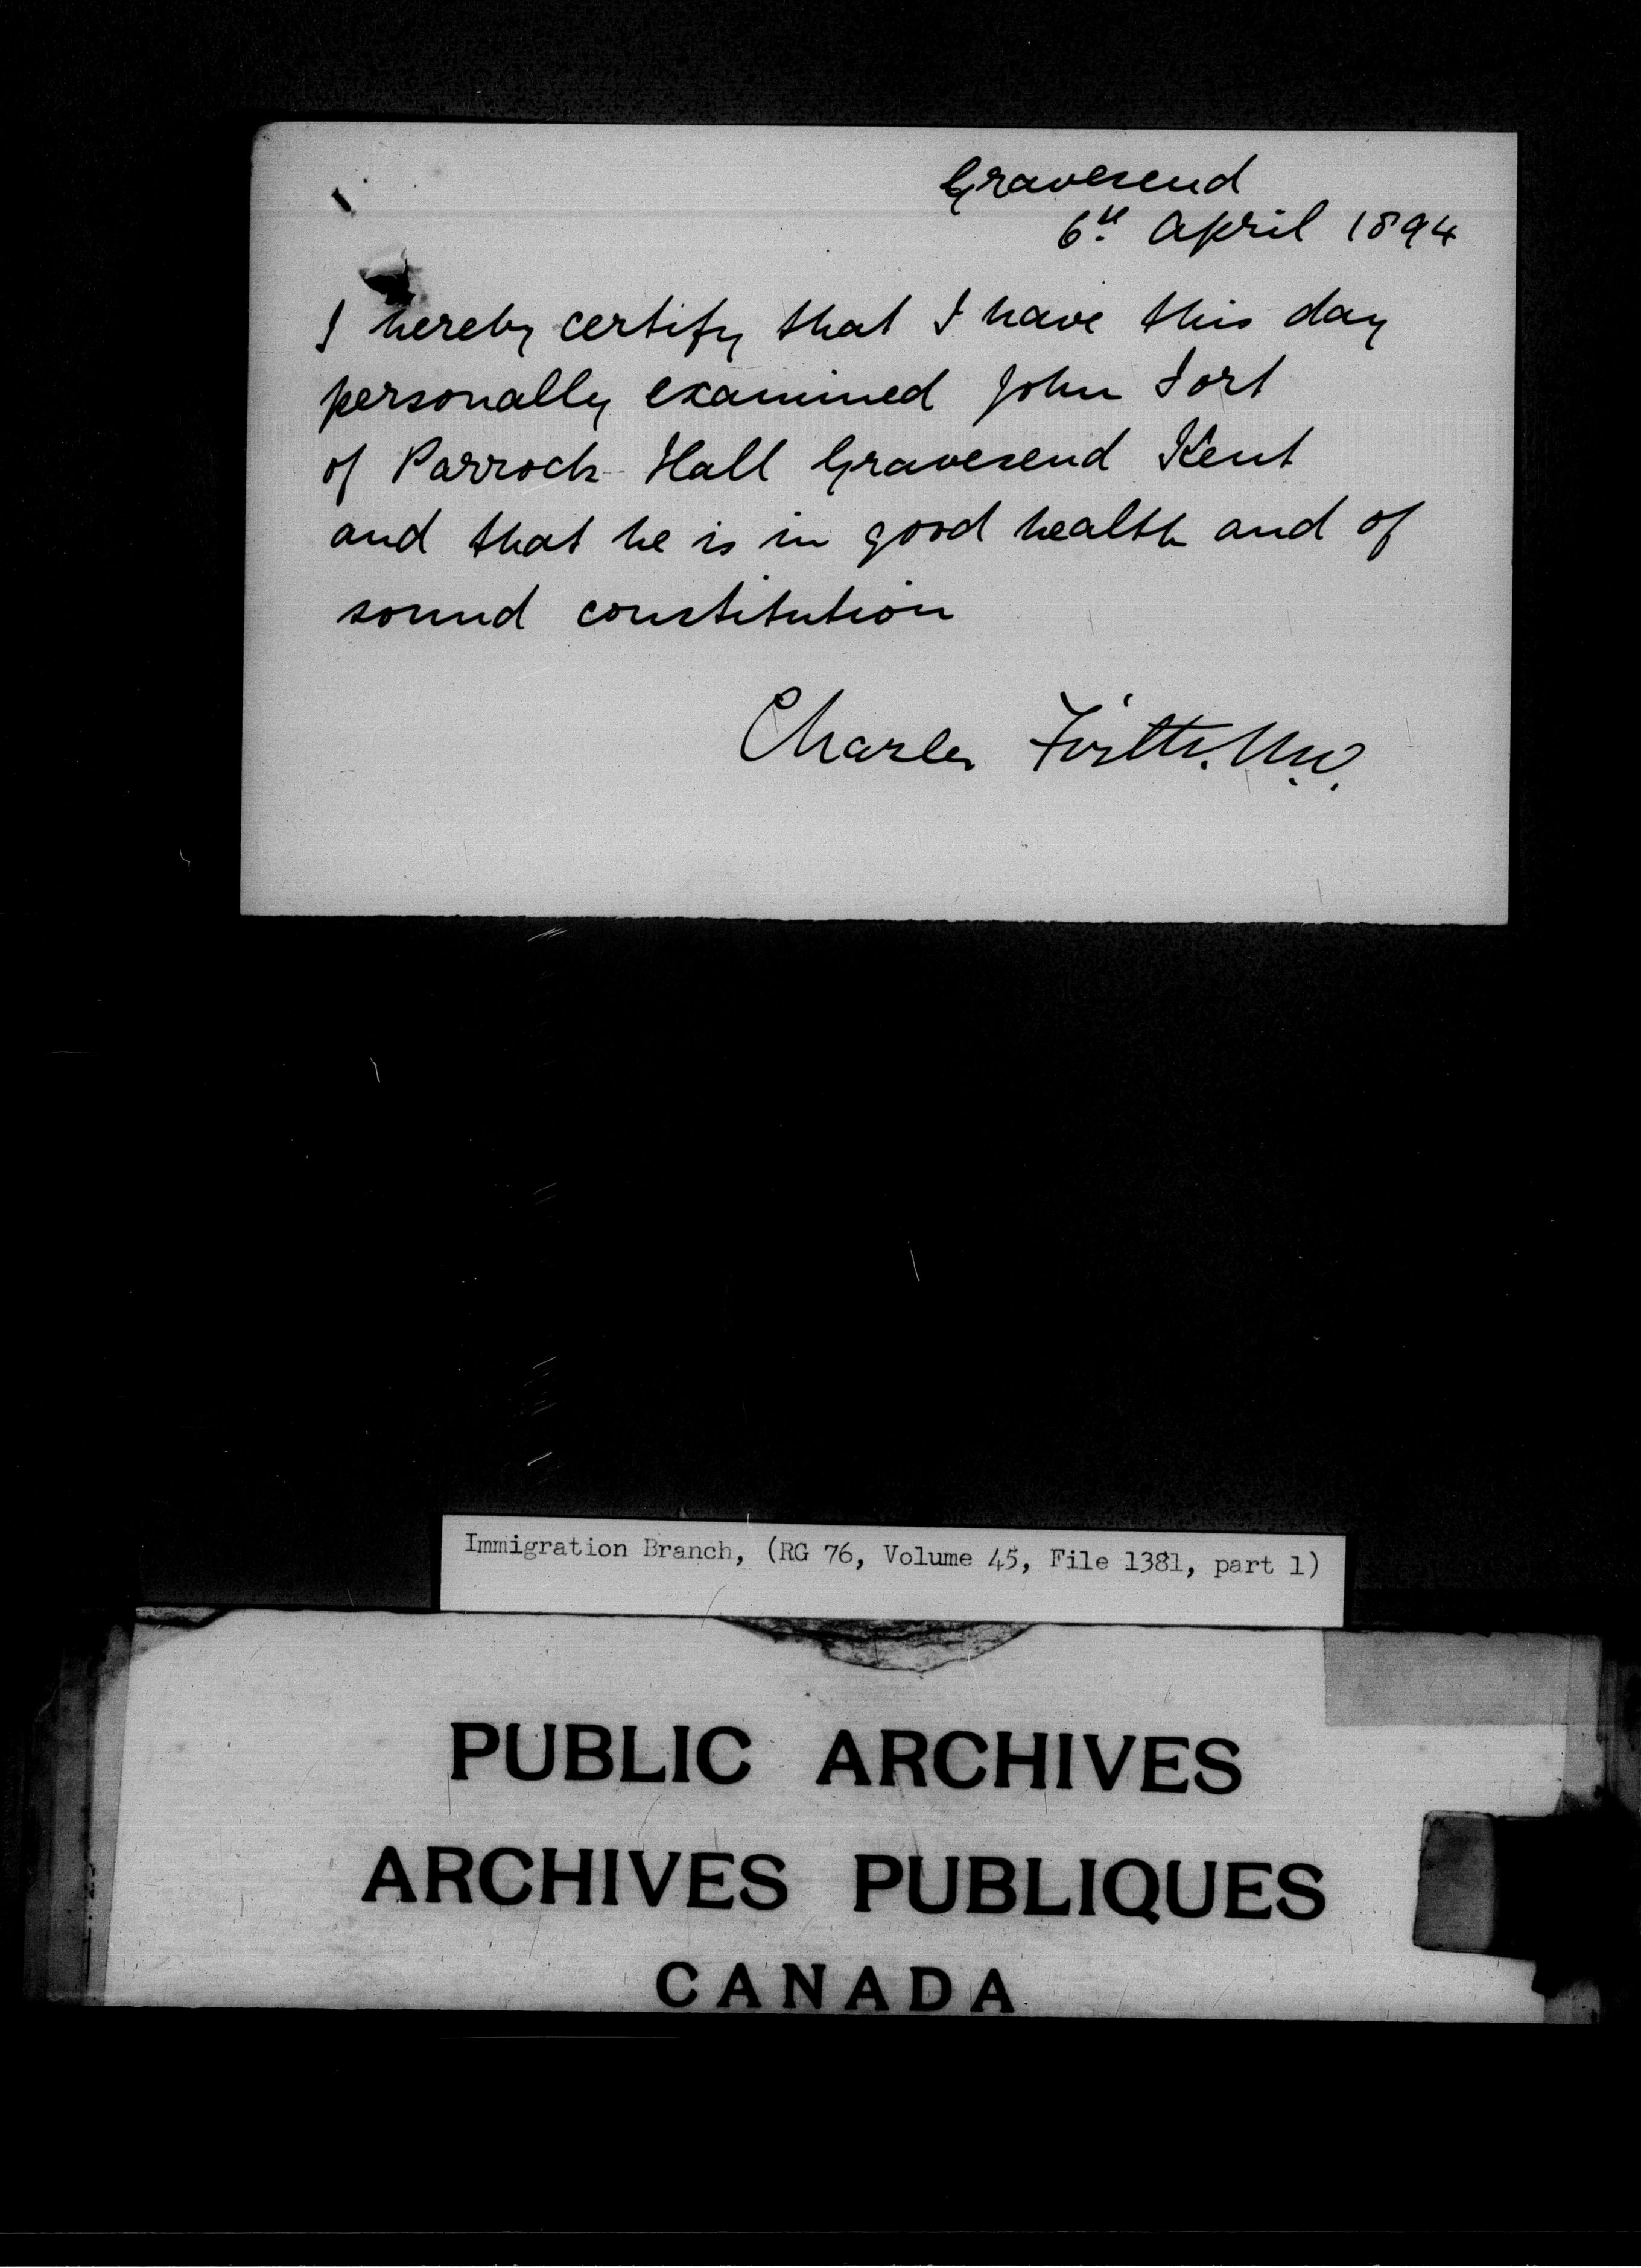 Gravesend
6th April 1894
I hereby certify that I have this day
personally examined John Fort
of Parrock Hall Gravesend Kent
and that he is in good health and of
sound constitution
Charles Firth. M.D.
Immigration Branch, (RG 76, Volume 45, File 1381, part 1)
PUBLIC ARCHIVES
ARCHIVES PUBLIQUES
CANADA